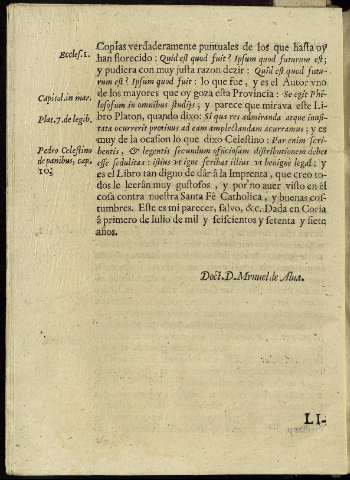 Copias verdaderamente puntuales de los que hasta oy
Eccles. 1.
han florecido: Quid est quod fuit? Ipsum quod futurum est;
y pudiera con muy justa razon dezir: Quid est quod futu-
rum est? Ipsum quod fuit: lo que fue, y es el Autor vno
de los mayores que oy goza esta Provincia: Se egit Phi-
Capitol. in mar.
losofum in omnibus studijs; y parece que mirava este Li-
bro Platon, quando dixo: Si qua res admiranda atque inusi-
Plat. 7. de legib.
tata ocurrerit protinus ad eam amplectandam ocurramus; y es
muy de la ocasion lo que dixo Celestino: Par enim scri-
Pedro Celestino
bentis, & legentis secundum oficiosam distributionem debet
de panibus, cap.
esse sedulitas: istius vt igne scribat illius vt benigne legat; y
10.
es el Libro tan digno de dàr à la Imprenta, que creo to-
dos le leeràn muy gustosos, y por no auer visto en èl
cosa contra nuestra Santa Fè Catholica, y buenas cos-
tumbres. Este es mi parecer, salvo, &c. Dada en Coria
à primero de Iulio de mil y seiscientos y setenta y siete
años.
Doct. D. Manuel de Alua.
LI-